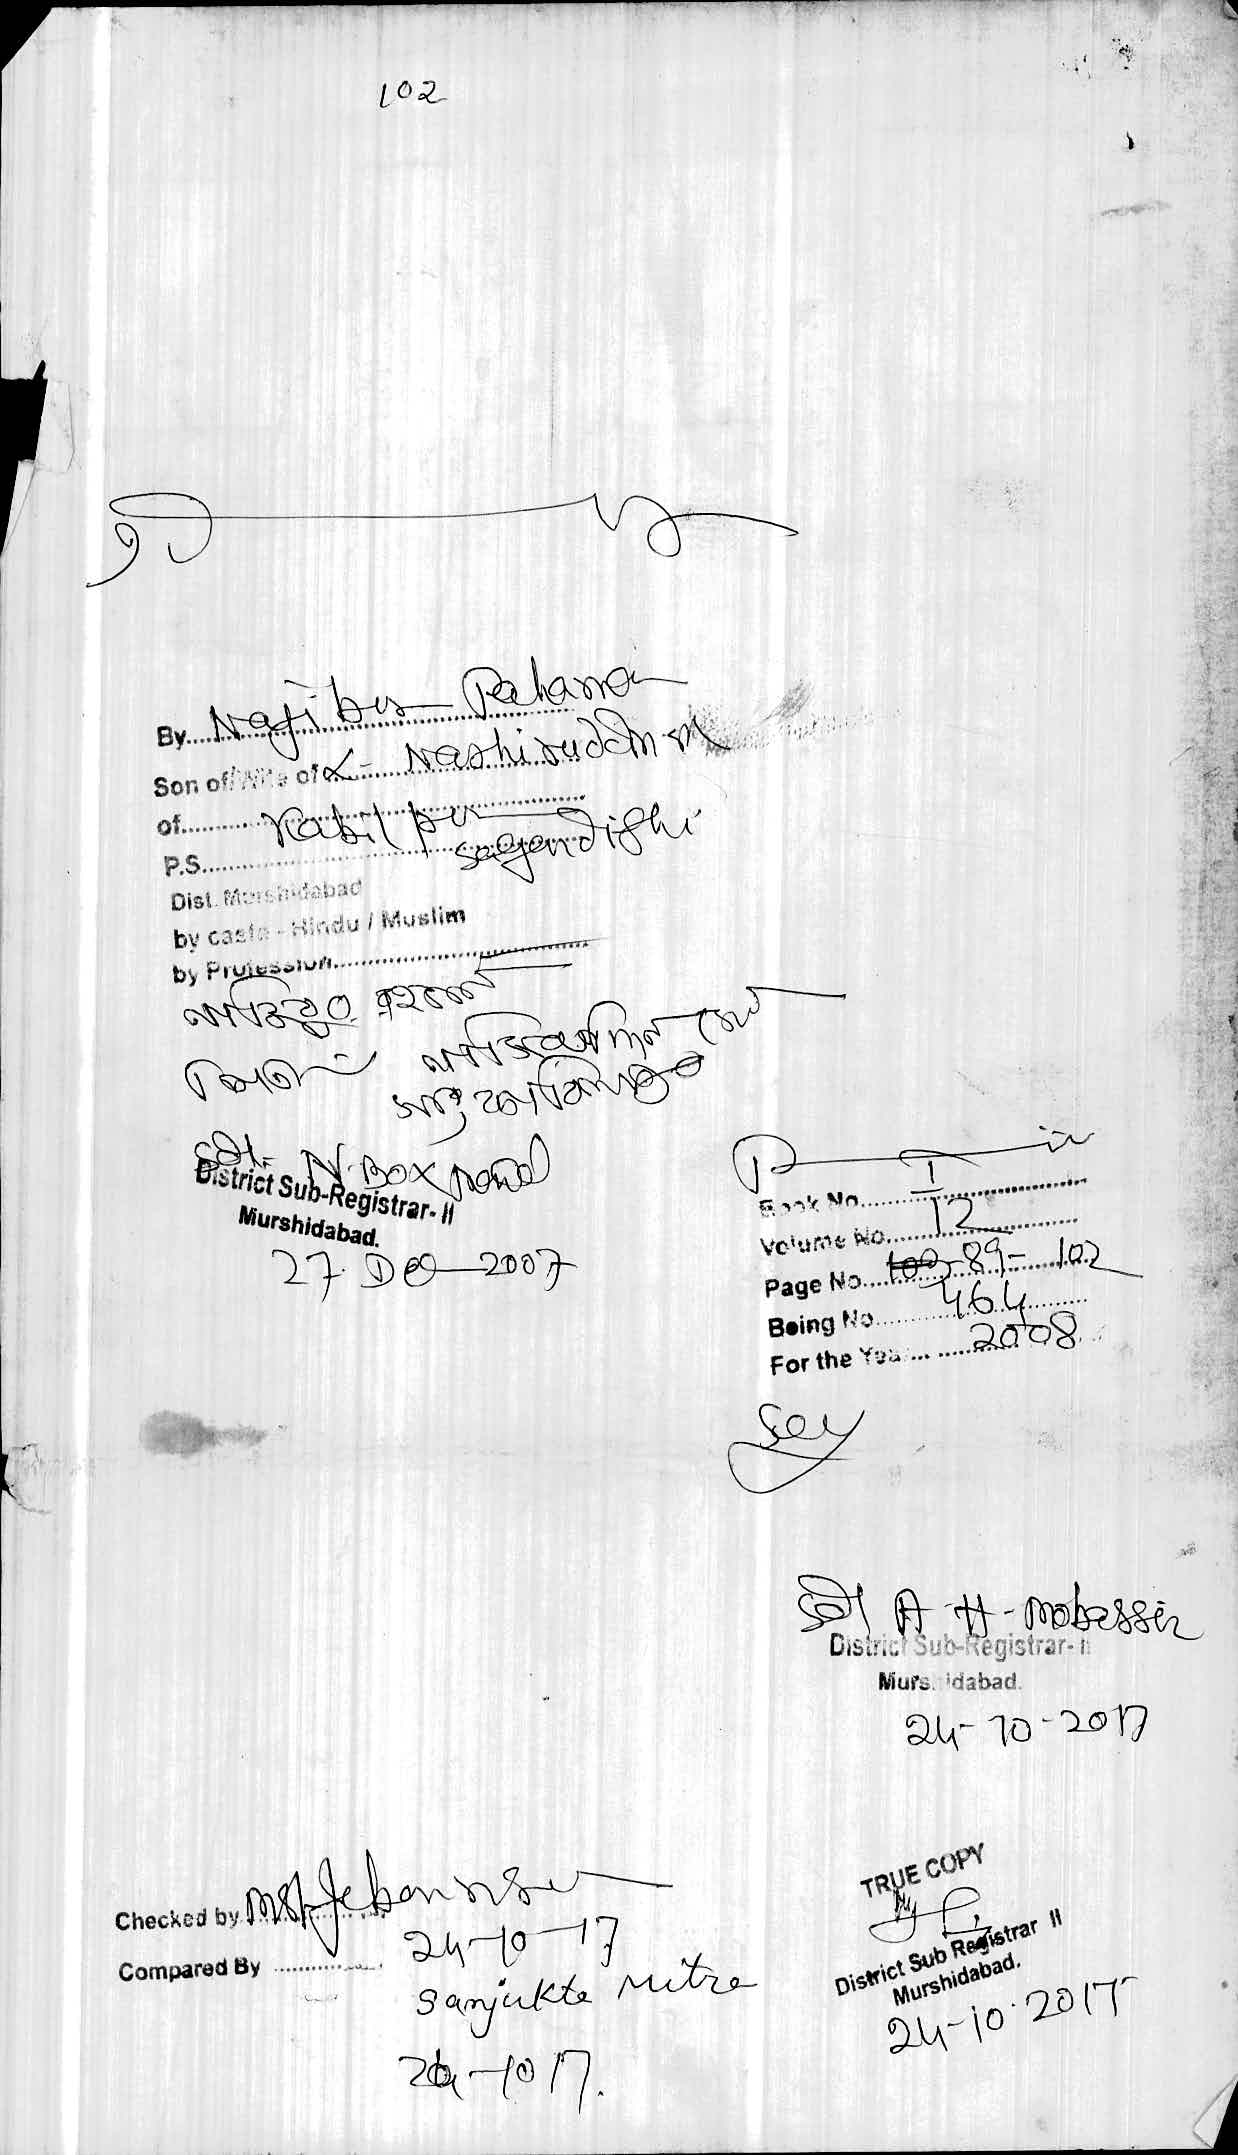 102
By Najibur Rahaman
Son of/Wife of L- Nashiruddin
of Kabilpur
P.S. Sagardighi
Dist. Murshidabad
by caste - Hindu / Muslim
by Profession
নাজিবুর রহমান
পিতা নাসিরুদ্দিন সেখ
সাং কাবিলপুর
District Sub-Registrar- II
Murshidabad.
27 Dec 2007
Book No. I
Volume No. 12
Page No. 89- 102
Being No. 464
For the Year 2008
A H - Mobassir
District Sub-Registrar- II
Murshidabad.
24-10-2017
Checked by
24-10-17
Compared By
Sanjukta Mitra
24-10 17.
TRUE COPY
District Sub Registrar II
Murshidabad.
24-10-2017